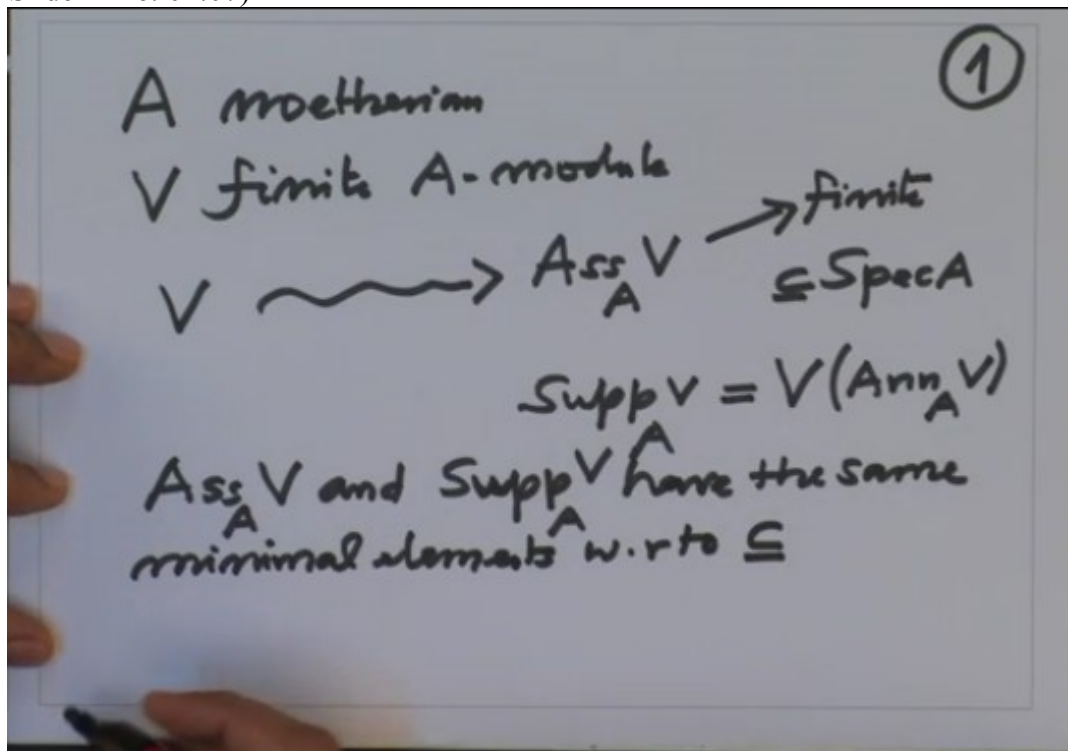 ①
A noetherian
V finite A-module
V ⟿ Ass_A V → finite
⊆ Spec A
Supp_A V = V(Ann_A V)
Ass_A V and Supp_A V have the same
minimal elements w.r to ⊆